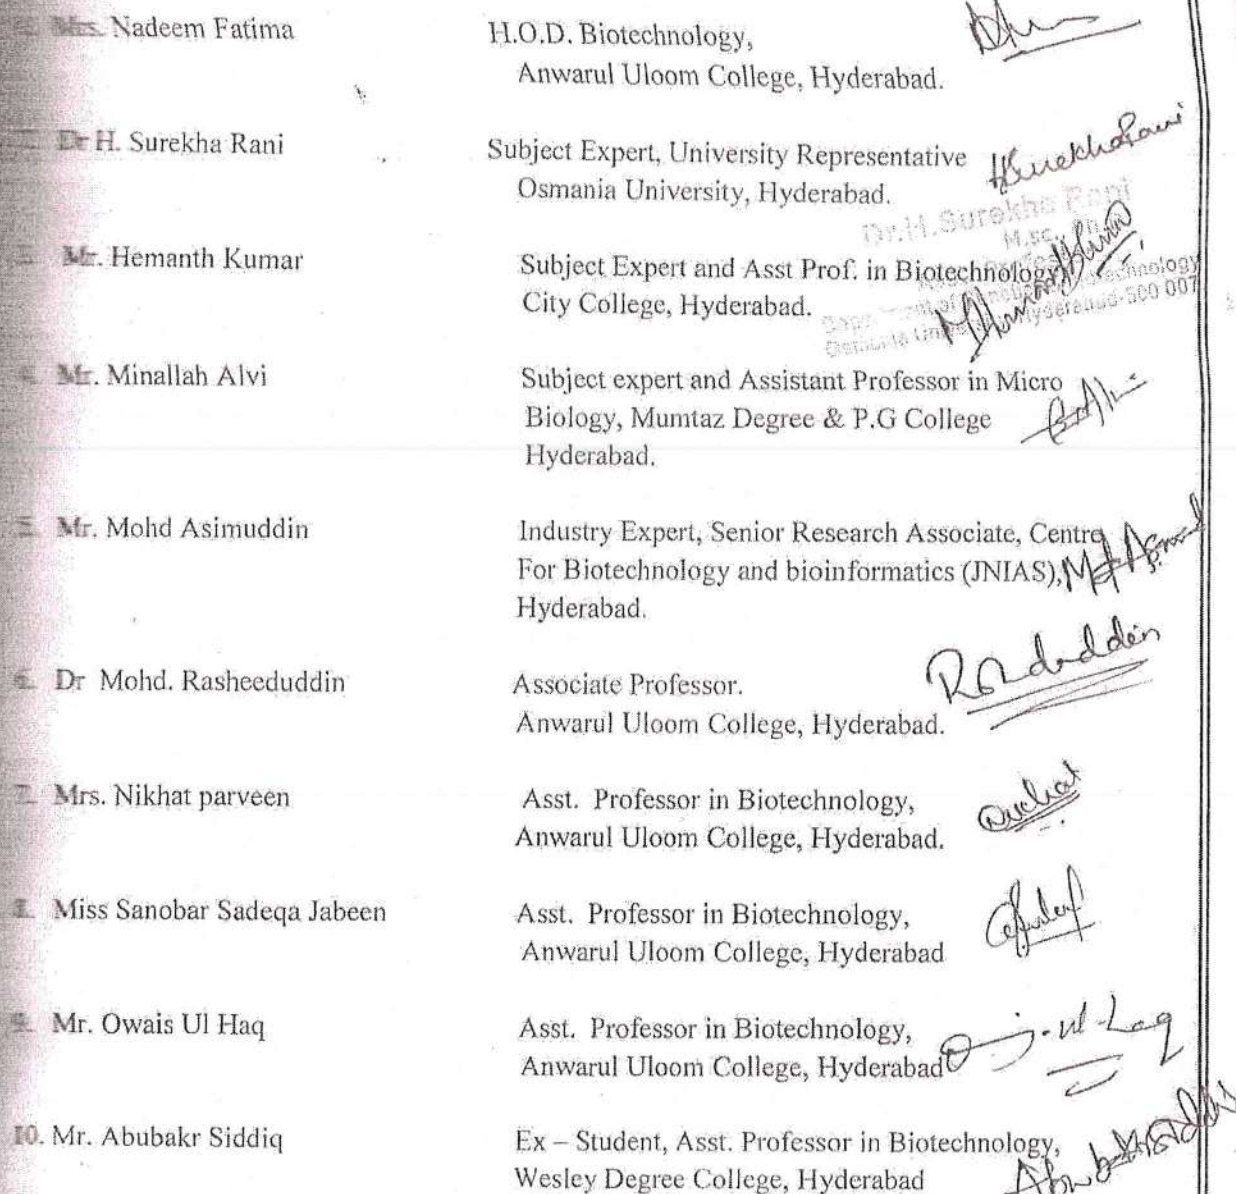 Mrs. Nadeem Fatima H.O.D. Biotechnology,
Anwarul Uloom College, Hyderabad.
Dr H. Surekha Rani Subject Expert, University Representative HSurekhaRani
Osmania University, Hyderabad.
Dr.H.Surekha Rani
M.Sc., Ph.D
3. Mr. Hemanth Kumar Subject Expert and Asst Prof. in Biotechnology
City College, Hyderabad.
Osmania University, Hyderabad-500 007
4. Mr. Minallah Alvi Subject expert and Assistant Professor in Micro
Biology, Mumtaz Degree & P.G College
Hyderabad.
5. Mr. Mohd Asimuddin Industry Expert, Senior Research Associate, Centre
For Biotechnology and bioinformatics (JNIAS),
Hyderabad.
6. Dr Mohd. Rasheeduddin Associate Professor.
Anwarul Uloom College, Hyderabad.
7. Mrs. Nikhat parveen Asst. Professor in Biotechnology,
Anwarul Uloom College, Hyderabad.
8. Miss Sanobar Sadeqa Jabeen Asst. Professor in Biotechnology,
Anwarul Uloom College, Hyderabad
9. Mr. Owais Ul Haq Asst. Professor in Biotechnology,
Anwarul Uloom College, Hyderabad
10. Mr. Abubakr Siddiq Ex – Student, Asst. Professor in Biotechnology,
Wesley Degree College, Hyderabad